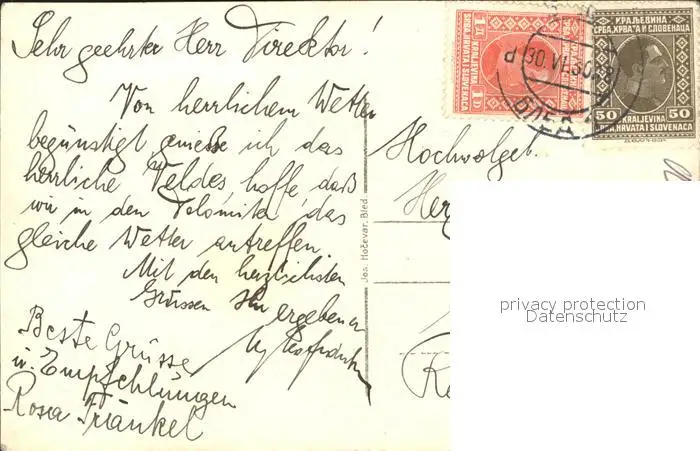 Sehr geehrter Herr Direktor!
Von herrlichem Wetter
begünstigt genieße ich das
herrliche Veldes, hoffe, daß
wir in den Dolomiten das
gleiche Wetter antreffen
Mit den herzlichsten
Grüssen Ihr ergebener
Beste Grüsse
u. Empfehlungen
Rosa Fränkel
Jos. Hočevar, Bled.
1Д КРАЉЕВИНА
СРБА, ХРВАТА И СЛОВЕНАЦА
KRALJEVINA
SRBA, HRVATA I SLOVENACA
1D
КРАЉЕВИНА
СРБА, ХРВАТА И СЛОВЕНАЦА
50 50
KRALJEVINA
SRBA, HRVATA I SLOVENACA
30. VI. 30
БЛЕД
Hochwolgeb.
privacy protection
Datenschutz